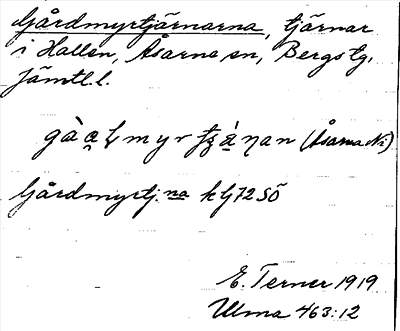 Gårdmyrtjärnarna, tjärnar
i Hallen, Åsarne sn, Bergs tg,
Jämtl. l.
(Åsarna Ni)
Gårdmyrtj.na klj 72 SÖ
E. Terner 1919
Ulma 463:12